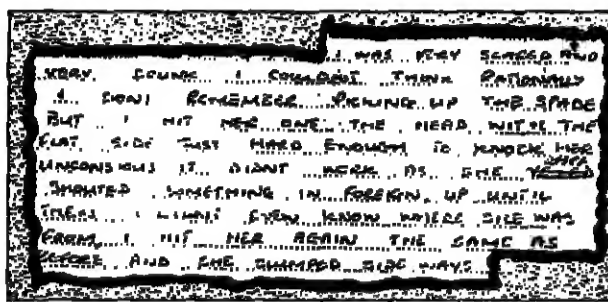 I WAS VERY SCARED AND
VERY DRUNK I COULDENT THINK RATIONALLY
I DONT REMEMBER PICKING UP THE SPADE
BUT I HIT HER ONE THE HEAD WITH THE
FLAT SIDE JUST HARD ENOUGH TO KNOCK HER
UNCONSIOUS IT DIDNT WORK AS SHE
SHOUTED SOMETHING IN FOREIGN UP UNTIL
THEN I DIDNT EVEN KNOW WHERE SHE WAS
FROM I HIT HER AGAIN THE SAME AS
BEFORE AND SHE SLUMPED SIDE WAYS